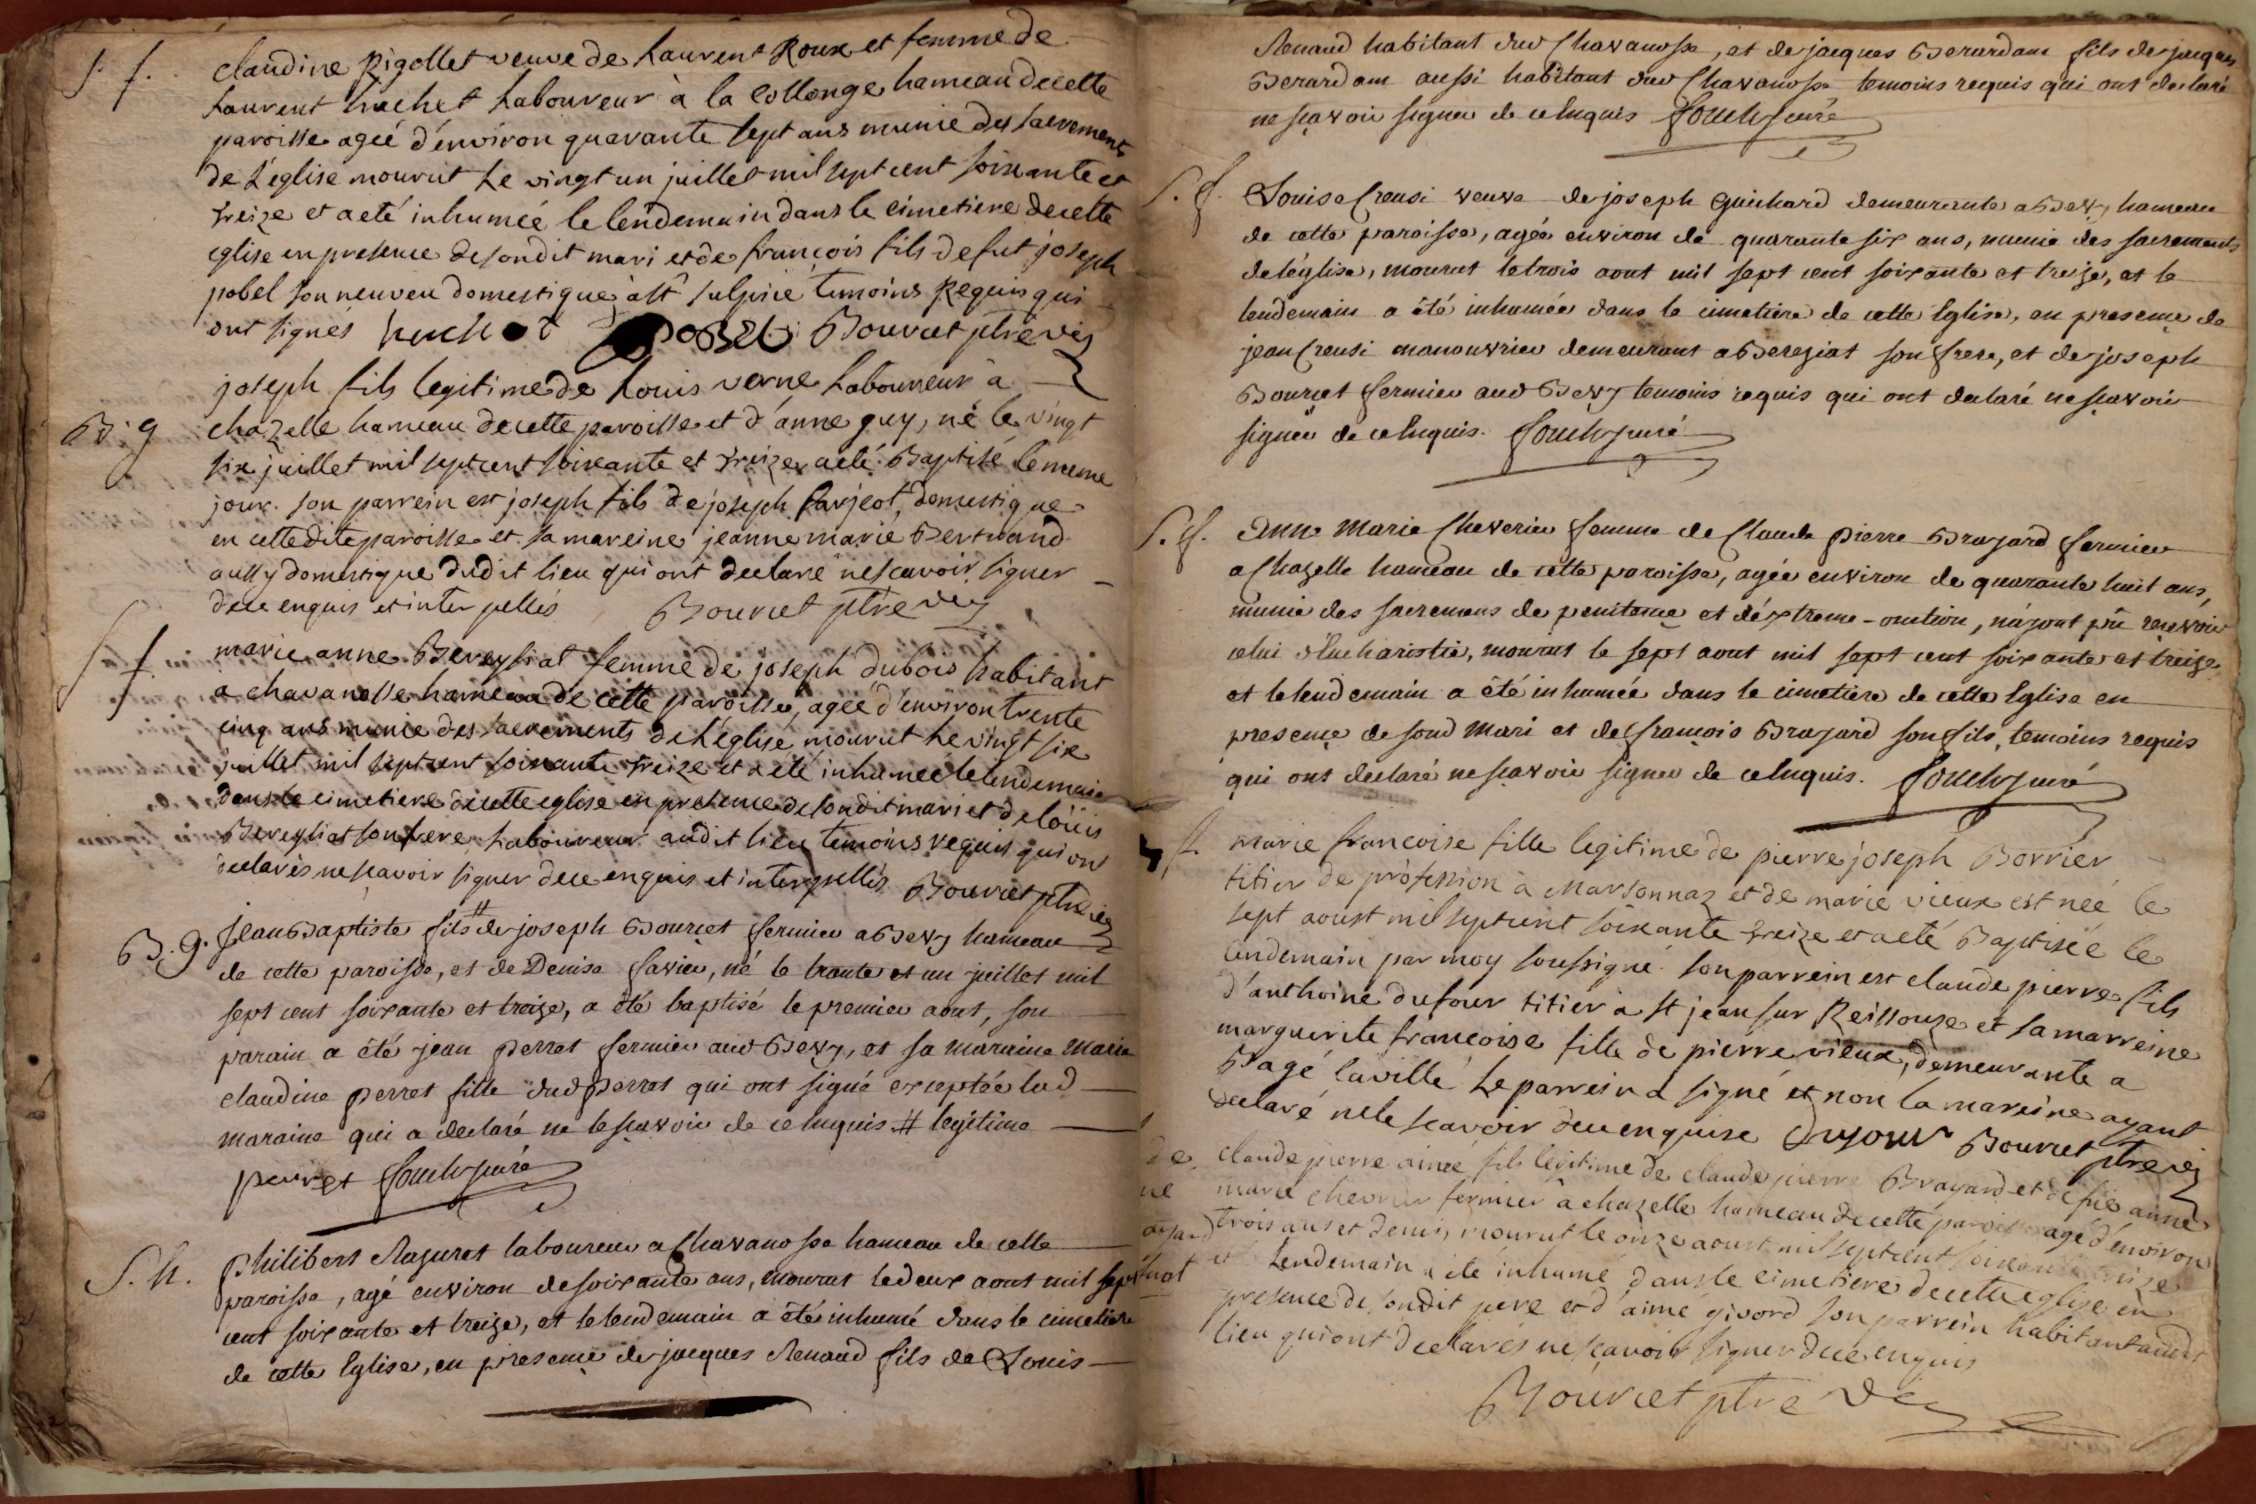 S. f.
claudine Rigollet veuve de Laurent Roux et femme de
Laurent huchet Laboureur à la Collonge hameau de cette
paroisse ageé d'environ quarante sept ans munie des sacrements
de L'église mourut Le vingt un juillet mil sept cent soixante et
treize et a eté inhumeé le lendemain dans le cimetiere de cette
eglise en presence de sondit mari et de françois fils de fut joseph
pobel son neuveu domestique à st sulpice temoins Requis qui
ont signés huchet pobel Bourcet ptre vic
B. g
joseph fils legitime de Louis verne Laboureur à
chazelle hameau de cette paroisse et d'anne guy, né le vingt
six juillet mil sept cent soixante et treize a eté Baptisé le meme
jour. son parrein est joseph fils de joseph farjeot, domestique
en cette dite paroisse et sa mareine jeanne marie Bertrand
aussy domestique dudit lieu qui ont declaré ne scavoir signer
de ce enquis et interpellés Bourcet ptre vic
S f
marie anne Bereyziat femme de joseph dubois habitant
a chavanosse hameau de cette paroisse, ageé d'environ trente
cinq ans munie des sacrements de L'église mourut Le vingt six
juillet mil sept cent soixante treize et a eté inhumeé le lendemain
dans le cimetiere de cette eglise en presence de sondit mari et de loüis
Bereyziat son frere Laboureur audit lieu temoins requis qui ont
declarés ne scavoir signer de ce enquis et interpellés Bourcet ptre vic
B. g.
jean Baptiste fils # de joseph Bourcet fermier a Bevy hameau
de cette paroisse, et de Denise favier, né le trante et un juillet mil
sept cent soixante et treize, a été baptisé le premier aout, son
parain a été jean perret fermier aud Bevy, et sa maraine Marie
claudine perret fille dud perret qui ont signé exceptée lad
maraine qui a declaré ne le sçavoir de ce Enquis # legitime
perret
S. h.
philibert Razuret laboureur a Chavanosse hameau de cette
paroisse, agé environ de soixante ans, mourut le deux aout mil sept
cent soixante et treize, et le lendemain a été inhumé dans le cimetiere
de cette Eglise, en presence de jacques Renaud fils de Louis
Renaud habitant dud Chavanosse, et de jacques Berardam fils de jacques
Berardam aussi habitant dud Chavanosse temoins requis qui ont declaré
ne sçavoir signer de ce Enquis
S. f.
Louise Creusi veuve de joseph Guichard demeurante a Bevy hameau
de cette paroisse, agée environ de quarante six ans, munie des sacrements
de léglise, mourut le trois aout mil sept cent soixante et treize, et le
lendemain a été inhumée dans le cimetiere de cette Eglise, en presence de
jean Creusi manouvrier demeurant a Bereziat son frere, et de joseph
Bourcet fermier aud Bevy temoins requis qui ont declaré ne sçavoir
signer de ce Enquis.
S. f.
Anne Marie Cheverier femme de Claude pierre Brayard fermier
a Chazelle hameau de cette paroisse, agée environ de quarante huit ans,
munie des sacremens de penitence et déxtreme-onction, n'ayant pû recevoir
celui d'Eucharistie, mourut le sept aout mil sept cent soixante et treize,
et le lendemain a été inhumée dans le cimetiere de cette Eglise en
presence de sond Mari et de françois Brayard son fils, temoins requis
qui ont declaré ne sçavoir signer de ce Enquis.
marie francoise fille legitime de pierre joseph Borrier
titier de profession à Marsonnaz et de marie vieux est neé le
sept aoust mil sept cent soixante treize et a eté Baptiseé le
lendemain par moy soussigné. son parrein est claude pierre fils
d'anthoine dufour titier a st jean sur Reissouze et sa marreine
marguerite francoise fille de pierre vieux, demeurante a
Bagé laville Le parrein a signé et non la mareine ayant
declaré ne le scavoir de ce enquise Dufour Bourcet ptre vic
claude pierre aimé fils légitime de claude pierre Brayard et de fut anne
marie chevrier fermier à chazelle hameau de cette paroisse agé d'environ
trois ans et demi, mourut le onze aoust mil sept cent soixante treize
et Lendemain a eté inhumé dans le cimetiere de cette eglise en
presence de sondit pere et d'aimé givord son parrein habitant audit
lieu qui ont declarés ne scavoir signer de ce enquis
Bourcet ptre vic